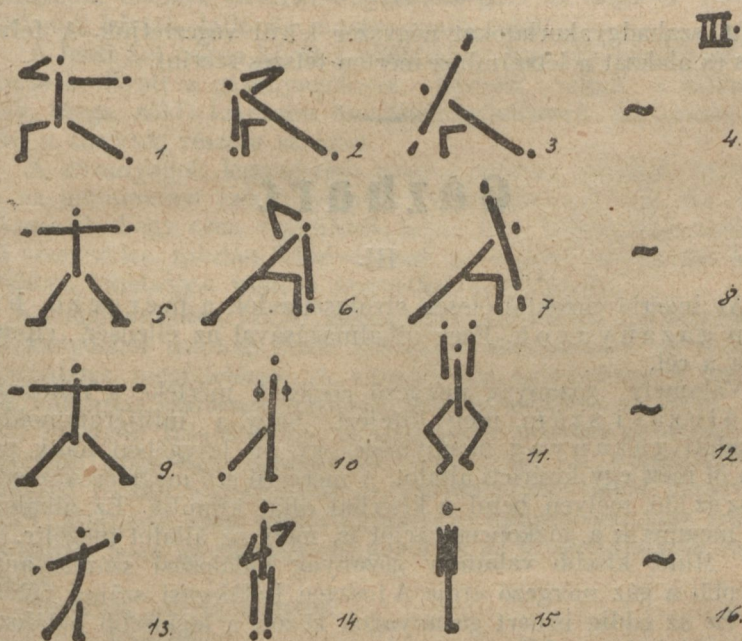 III.
1 2 3 ~ 4.
5. 6. 7. ~ 8.
9. 10 11. ~ 12.
13. 14 15. ~ 16.